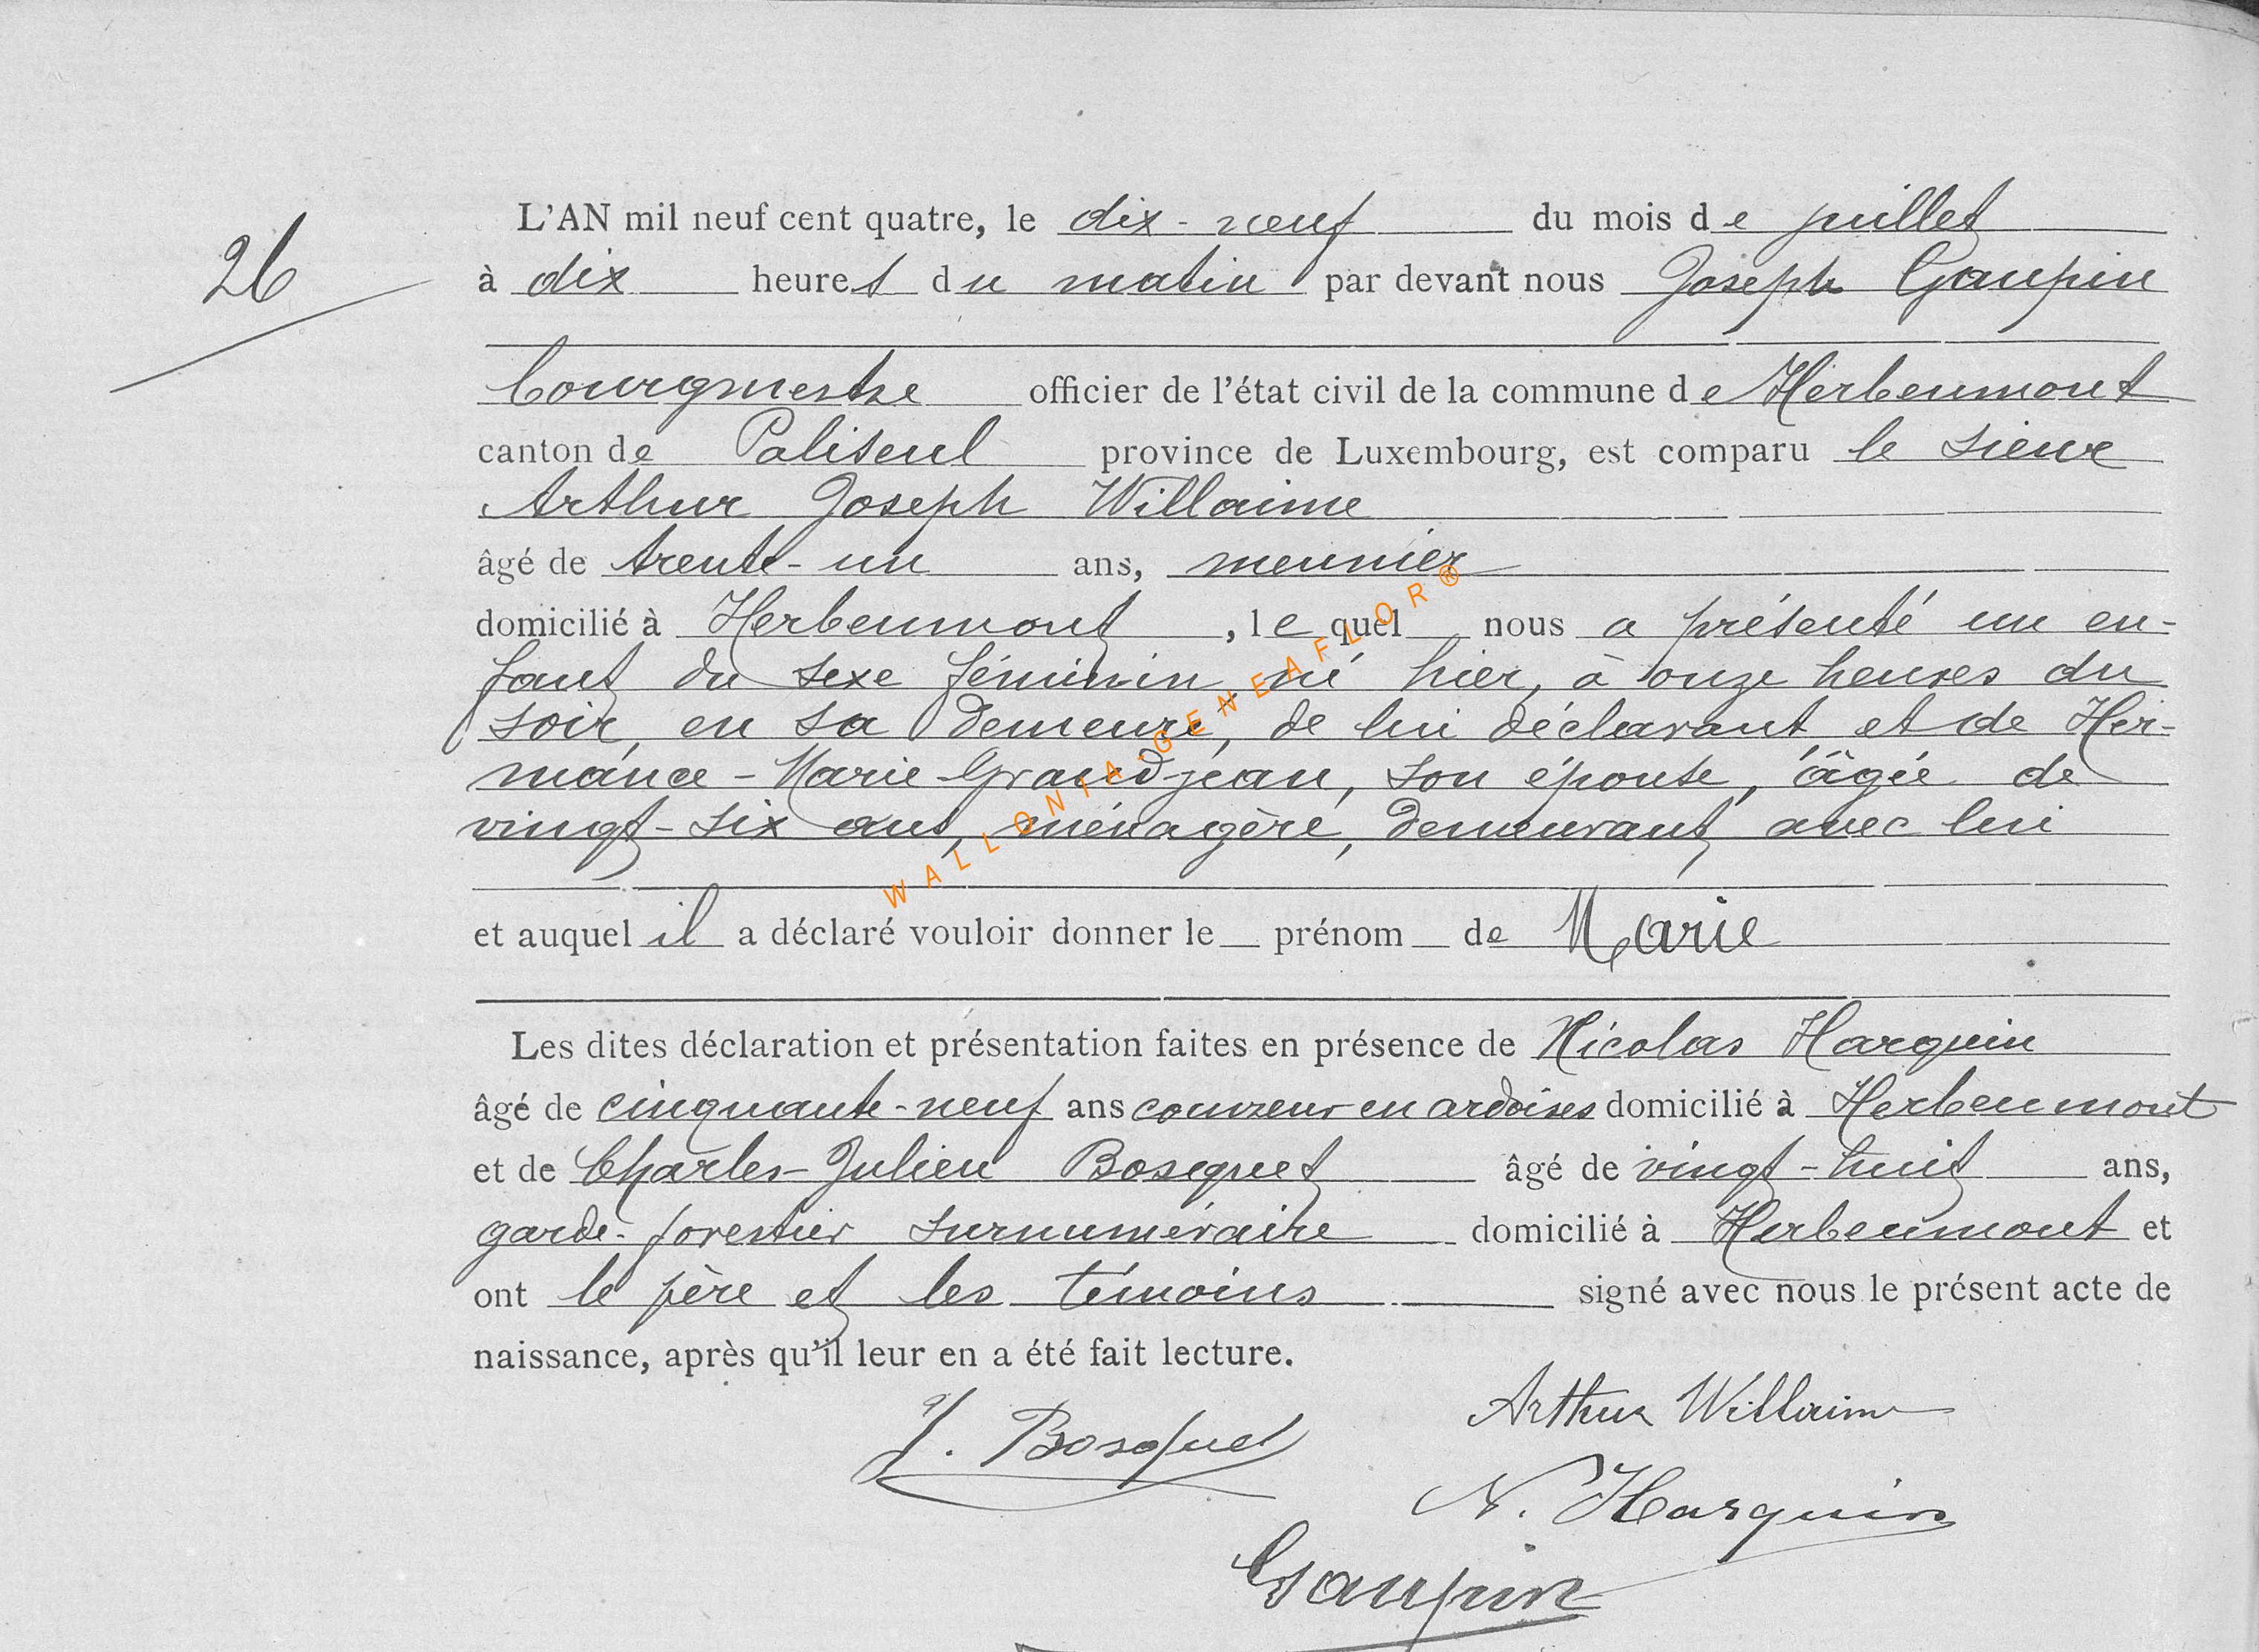 26
L'AN mil neuf cent quatre, le dix-neuf du mois de juillet
à dix heures du matin par devant nous Joseph Gaupin
bourgmestre officier de l'état civil de la commune de Herbeumont
canton de Paliseul province de Luxembourg, est comparu le sieur
Arthur Joseph Willaime
âgé de trente-un ans, meunier
domicilié à Herbeumont, lequel nous a présenté un en-
fant du sexe féminin, né hier, à onze heures du
soir, en sa demeure, de lui déclarant et de Her-
mance-Marie Grandjean, son épouse, âgée de
vingt-six ans, ménagère, demeurant avec lui
et auquel il a déclaré vouloir donner le prénom de Marie
Les dites déclaration et présentation faites en présence de Nicolas Harquin
âgé de cinquante-neuf ans couvreur en ardoises domicilié à Herbeumont
et de Charles-Julien Bosquet âgé de vingt-huit ans,
garde-forestier surnuméraire domicilié à Herbeumont et
ont le père et les témoins signé avec nous le présent acte de
naissance, après qu'il leur en a été fait lecture.
Arthur Willaime
J. Bosquet
N. Harquin
Gaupin
WALLONIA-GENEAFLOR®